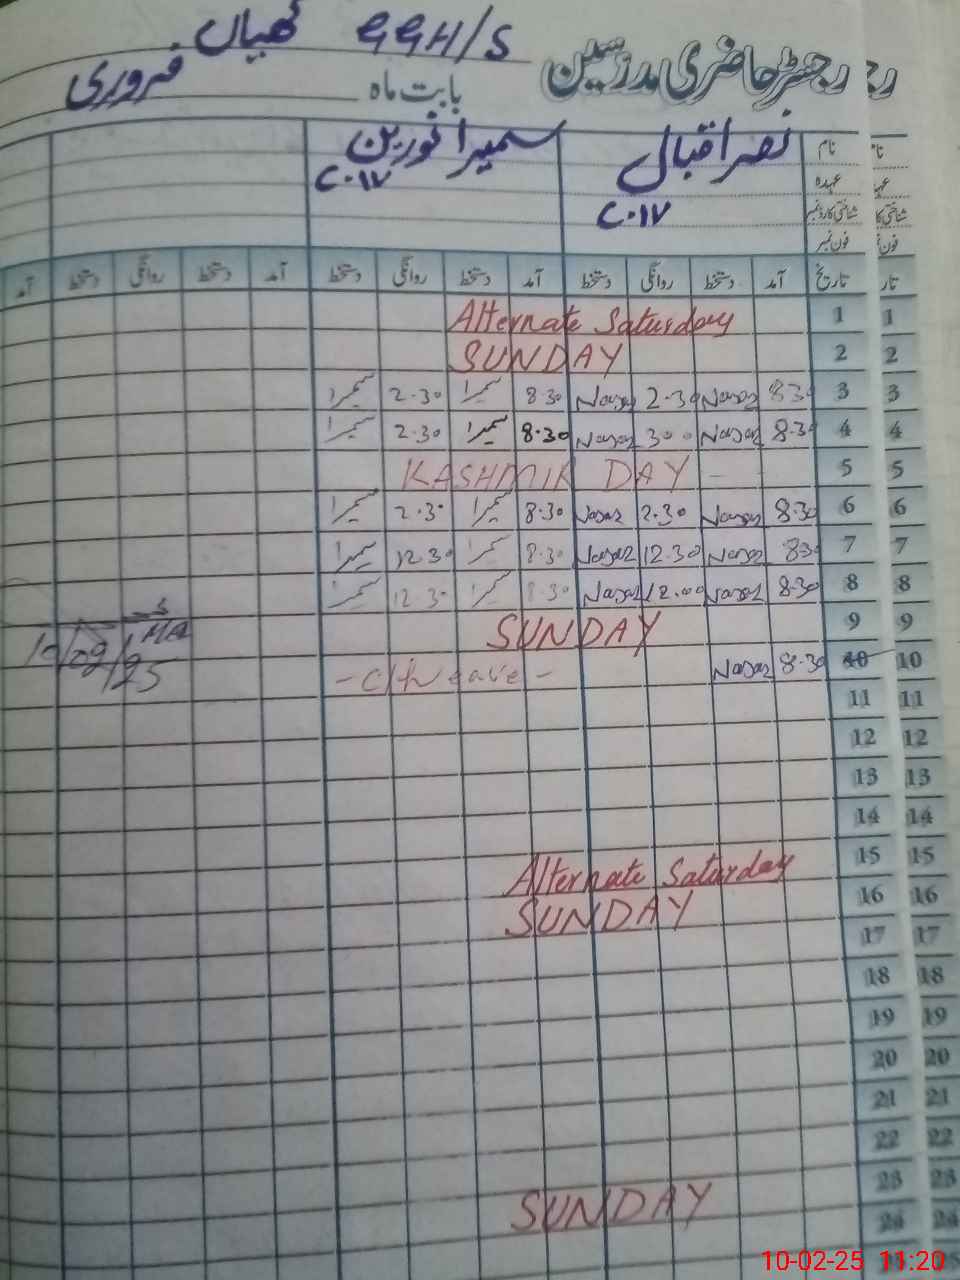 گھیاں GGH/S
رجسٹر حاضری مدرسین
بابت ماہ فروری
نام نصر اقبال سمیرا نورین
عہدہ C.IV C.IV
شناختی کارڈ نمبر
فون نمبر
تاریخ آمد دستخط روانگی دستخط آمد دستخط روانگی دستخط آمد دستخط روانگی دستخط آمد
1 Alternate Saturday
2 SUNDAY
3 8.30 2.30 8.30 سمیرا 2.30 سمیرا
4 8.30 3.00 8.30 سمیرا 2.30 سمیرا
5 KASHMIR DAY
6 8.30 2.30 8.30 سمیرا 2.30 سمیرا
7 8.30 12.30 8.30 سمیرا 12.30 سمیرا
8 8.30 12.00 8.30 سمیرا 12.30 سمیرا
9 SUNDAY
10 8.30 - C/Leave -
10/02/25
11
12
13
14
15 Alternate Saturday
16 SUNDAY
17
18
19
20
21
22
23 SUNDAY
24
10-02-25 11:20